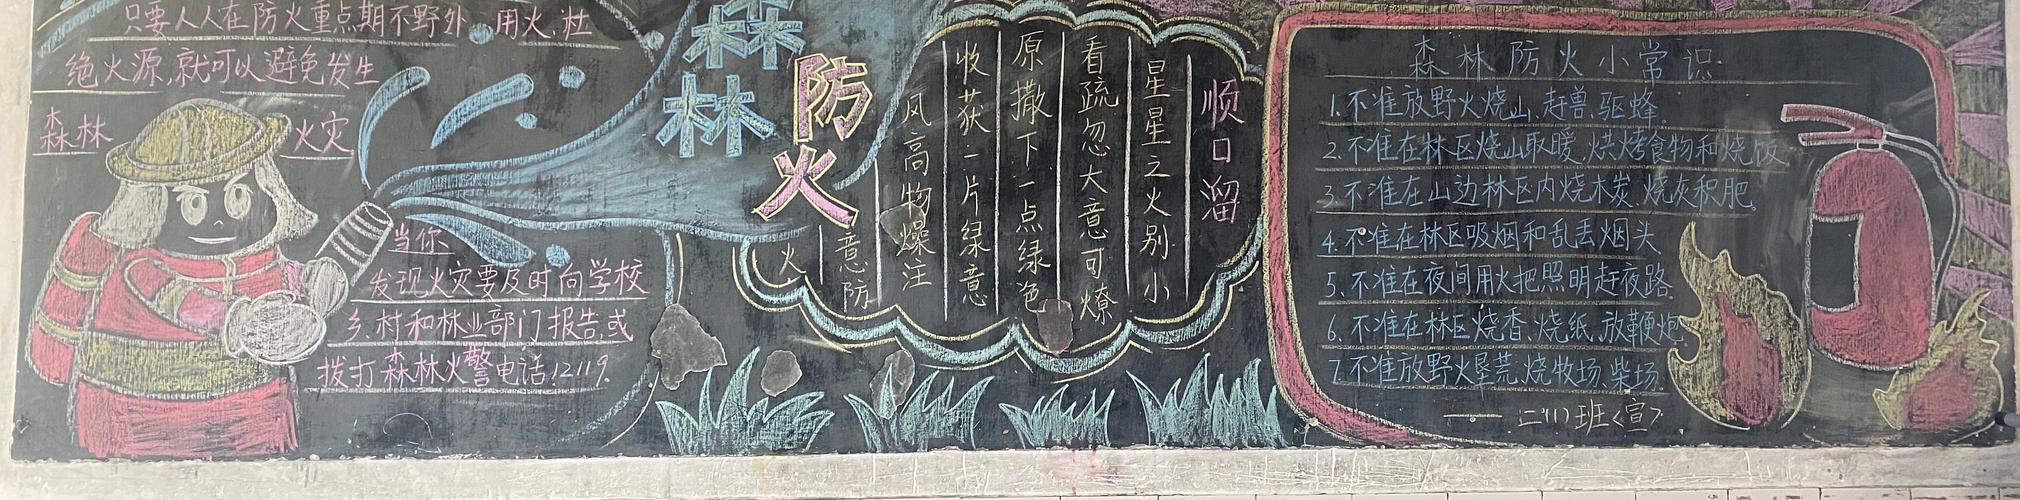 只要人人在防火重点期不野外用火,杜
绝火源,就可以避免发生
森林火灾
当你
发现火灾要及时向学校
乡、村和林业部门报告或
拨打森林火警电话12119。
森林
防火
顺口溜
星星之火别小
看疏忽大意可燎
原撒下一点绿色
收获一片绿意
风高物燥注
意防
火
森林防火小常识
1.不准放野火烧山、赶兽、驱蜂。
2.不准在林区烧山取暖、烘烤食物和烧饭。
3.不准在山边林区内烧木炭、烧灰积肥。
4.不准在林区吸烟和乱丢烟头
5.不准在夜间用火把照明赶夜路。
6.不准在林区烧香、烧纸、放鞭炮。
7.不准放野火垦荒、烧牧场、柴场。
——二(1)班<宣>